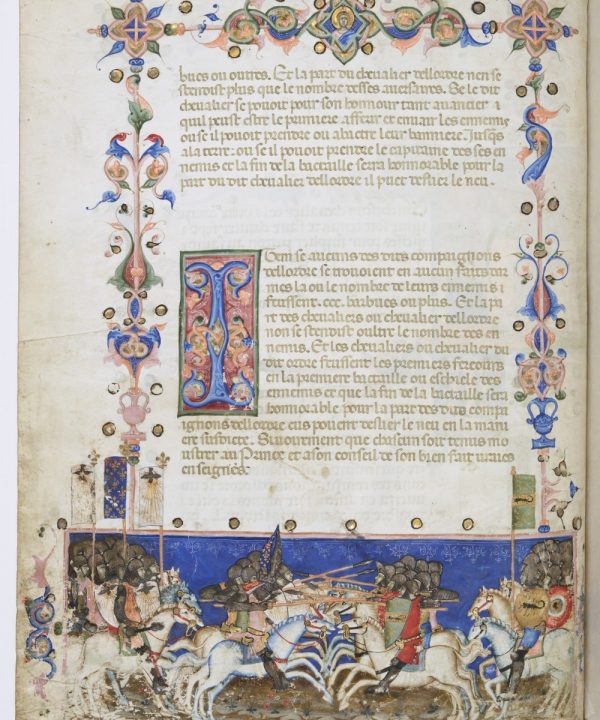 bues ou outres. Et la part du chevalier dellordre nen se
stendoit plus que le nombre desses aversaires. Se le dit
chevalier se povoit pour son honnour tant avancier i
quil peust estre le premiere afferir et envair les ennemis
ou se il povoit prendre ou abatre leur banniere Jusqs
a la terre: ou se il povoit prendre le capitaine des ses en
nemis et la fin de la battaille serra honnorable pour la
part du dit chevalier dellordre il puet deslier le neu.
Item se aucuns des dits compaignons
dellordre se trovoient en aucun fait dar
mes la ou le nombre de leurs ennemis i
feussent .ccc. barbues ou plus. Et la pa
rt des chevaliers ou chevalier dellordre
non se stendist oultre le nombre des en
nemis. Et les chevaliers ou chevalier du
dit ordre feussent les premiers ferours
en la premiere battaille ou eschiele des
ennemis et que la fin de la battaille serà
honnorable pour la part des dits compa
ignons dellordre eus povent deslier le neu en la mani
ere susdicte. Si vovement que chascun soit tenus mo
ustrer au Prince et a son conseil de son bien fait vraies
enseignes.